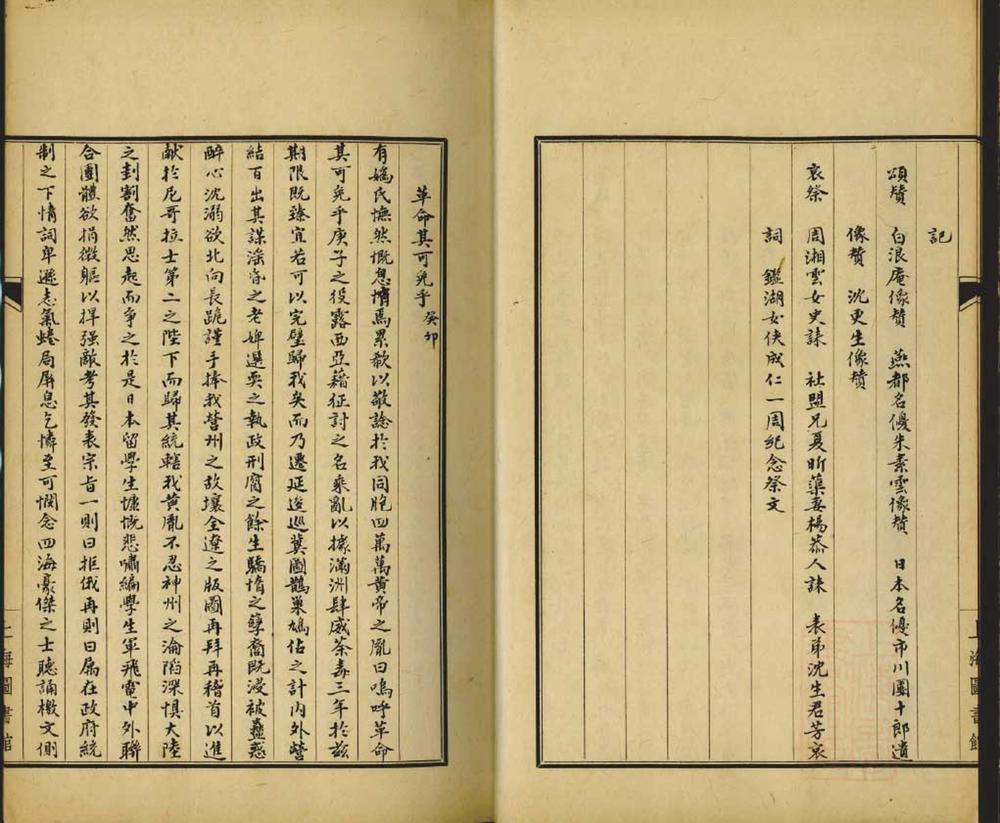 記
頌贊　白浪庵像贊　燕都名優朱素雲像贊　日本名優市川團十郎遺
像贊　沈更生像贊
哀祭　周湘雲女史誄　社盟兄夏昕蕖妻楊恭人誄　表弟沈生君芳哀
詞　鑑湖女俠成仁一周紀念祭文
上海圖書館
革命其可免乎癸卯
有媯氏憮然慨息懤焉累欷以敬諗於我同胞四萬萬黃帝之胤曰嗚呼革命
其可免乎庚子之役露西亞藉征討之名乘亂以據滿洲肆威荼毒三年於玆
期限既臻宜若可以完璧歸我矣而乃遷延逡巡冀圖鵲巢鳩佔之計内外營
結百出其謀淫昏之老婢選耎之執政刑腐之餘生驕惰之孽裔既浸被蠱惑
醉心沈溺欲北向長跪謹手捧我營州之故壤全遼之版圖再拜再稽首以進
献於尼哥拉士第二之陛下而歸其統轄我黃胤不忍神州之淪陷深惧大陸
之刲割奮然思起而爭之於是日本留學生慷慨悲嘯編學生軍飛電中外聯
合團體欲捐微軀以捍强敵考其發表宗旨一則曰拒俄再則曰屬在政府統
制之下情詞卑遜志氣蜷局屏息乞憐至可憫念四海豪傑之士聽誦檄文側
上海圖書館